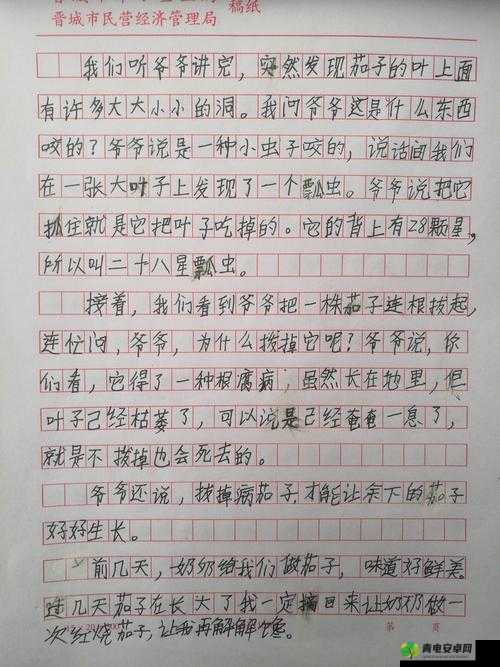 晋城市民营经济管理局 稿纸
我们听爷爷讲完，突然发现茄子的叶上面
有许多大大小小的洞。我问爷爷这是什么东西
咬的？爷爷说是一种小虫子咬的，说话间我们
在一张大叶子上发现了一个瓢虫。爷爷说把它
抓住就是它把叶子吃掉的。它的背上有28颗星，
所以叫二十八星瓢虫。
接着，我们看到爷爷把一株茄子连根拔起，
连忙问，爷爷，为什么拨掉它呢？爷爷说，你
们看，它得了一种根腐病；虽然长在地里，但
叶子已经枯萎了，可以说是已经奄奄一息了，
就是不拨掉也会死去的。
爷爷还说，拔掉病茄子，才能让余下的茄子
好好生长。
前几天，奶奶给我们做茄子，味道好鲜美。
过几天茄子在长大了我一定摘回来让奶奶做一
次红烧茄子，让我再解解馋。
第 页
青电安卓网